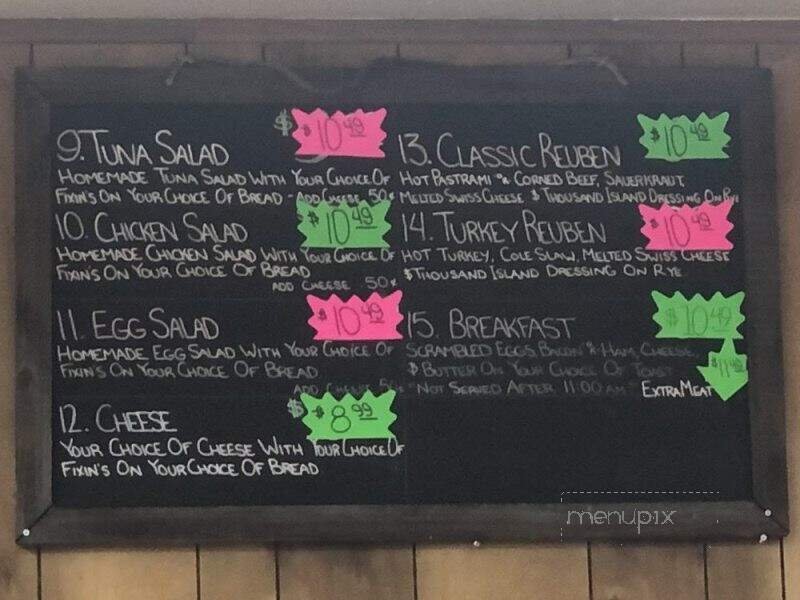 9. TUNA SALAD $ $10.49
HOMEMADE TUNA SALAD WITH YOUR CHOICE OF
FIXIN'S ON YOUR CHOICE OF BREAD - ADD CHEESE 50¢
10. CHICKEN SALAD $10.49
HOMEMADE CHICKEN SALAD WITH YOUR CHOICE OF
FIXIN'S ON YOUR CHOICE OF BREAD
ADD CHEESE 50¢
11. EGG SALAD $10.49
HOMEMADE EGG SALAD WITH YOUR CHOICE OF
FIXIN'S ON YOUR CHOICE OF BREAD
ADD CHEESE 50¢
12. CHEESE $ $8.99
YOUR CHOICE OF CHEESE WITH YOUR CHOICE OF
FIXIN'S ON YOUR CHOICE OF BREAD
13. CLASSIC REUBEN $10.49
HOT PASTRAMI OR CORNED BEEF, SAUERKRAUT,
MELTED SWISS CHEESE & THOUSAND ISLAND DRESSING ON RYE
14. TURKEY REUBEN $10.49
HOT TURKEY, COLE SLAW, MELTED SWISS CHEESE
& THOUSAND ISLAND DRESSING ON RYE
15. BREAKFAST $10.49
SCRAMBLED EGGS, BACON OR HAM, CHEESE,
& BUTTER ON YOUR CHOICE OF TOAST
"NOT SERVED AFTER 11:00 AM"
EXTRA MEAT $11.49
menupix